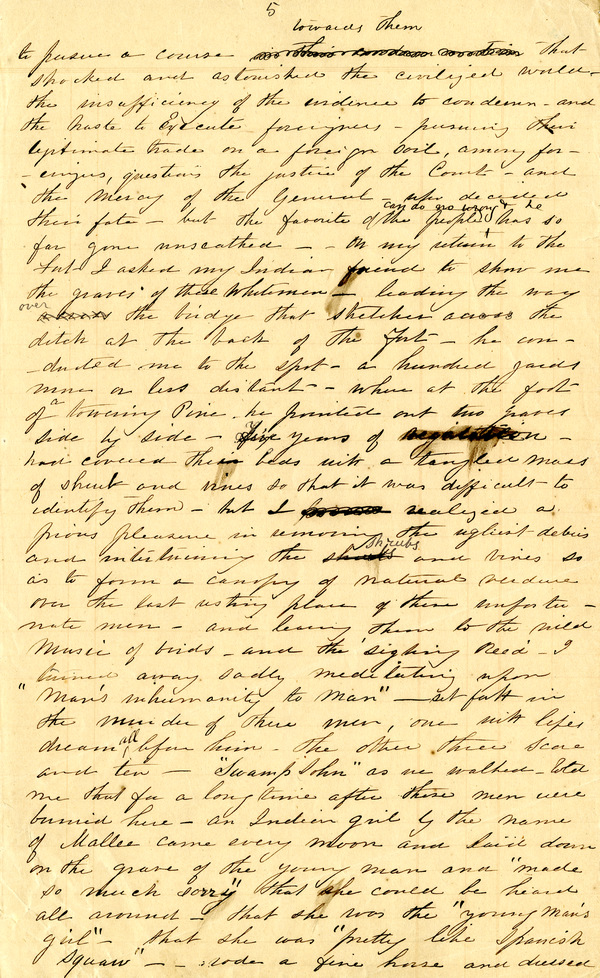 5
towards them
to pursue a course that
shocked and astonished the civilized world -
the insufficiency of the evidence to condemn - and
the haste to Execute foreigners - pursuing their
legitimate trade on a foreign soil, among for-
-eigners, questions the justice of the Court - and
the Mercy of the General - who decided
can do no wrong & he
their fate - but the favorite of the people has so
far gone unscathed - - On my return to the
Fort I asked my Indian friend to show me
the graves of these Whitemen - leading the way
over
the bridge that stretches across the
ditch at the back of the Fort - he con-
-ducted me to the spot - a hundred yards
more or less distant - where at the foot
of a towering Pine he pointed out two graves
side by side - Five years of vegetation -
had covered their beds with a tangled mass
of shrub and vines so that it was difficult to
identify them - but I realized a
pious pleasure in removing the ugliest debris
shrubs
and intertwining the and vines so
as to form a canopy of natural verdure
over the last resting place of these unfortu-
nate men - and leaving them to the wild
Music of birds - and the 'sighing Reed' - I
turned away sadly meditating upon
"Man's inhumanity to Man" - set forth in
the murder of these men, one with life's
dream all before him - the other three score
and ten - "Swamp John" as we walked - told
me that for a long time after these men were
burried here - an Indian girl by the name
of Mallee came every moon and laid down
on the grave of the young man and "made
so much sorry" that she could be heard
all around - that she was the "young Man's
girl" - that she was "pretty like Spanish
Squaw" - - rode a fine horse and dressed